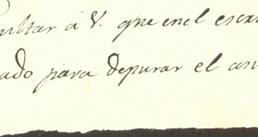 ultar á V. que enel escri
ado para depurar el asu